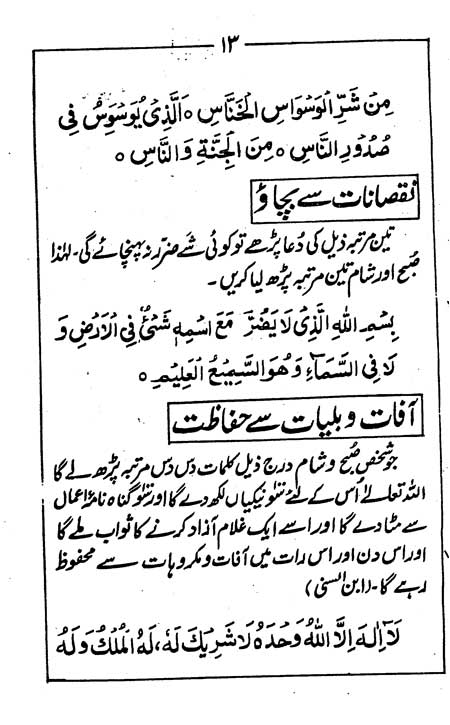 ۱۳
مِنْ شَرِّ الْوَسْوَاسِ الْخَنَّاسِ ○ الَّذِیْ یُوَسْوِسُ فِیْ
صُدُوْرِ النَّاسِ ○ مِنَ الْجِنَّةِ وَالنَّاسِ ○
نقصانات سے بچاؤ
تین مرتبہ ذیل کی دُعا پڑھے تو کوئی شے ضرر نہ پہنچائے گی۔ لہٰذا
صُبح اور شام تین مرتبہ پڑھ لیا کریں۔
بِسْمِ اللهِ الَّذِیْ لَا یَضُرُّ مَعَ اسْمِهٖ شَیْءٌ فِی الْاَرْضِ وَ
لَا فِی السَّمَآءِ وَهُوَ السَّمِیْعُ الْعَلِیْمِ ○
آفات و بلیات سے حفاظت
جو شخص صُبح و شام درج ذیل کلمات دس دس مرتبہ پڑھ لے گا
اللہ تعالےٰ اُس کے لئے سَو نیکیاں لکھ دے گا اور سَو گناہ نامۂ اعمال
سے مٹا دے گا اور اسے ایک غلام آزاد کرنے کا ثواب ملے گا
اور اس دن اور اس رات میں آفات و مکروہات سے محفوظ
رہے گا۔ (ابن السنی)
لَآ اِلٰهَ اِلَّا اللهُ وَحْدَهٗ لَا شَرِیْكَ لَهٗ، لَهُ الْمُلْكُ وَلَهُ